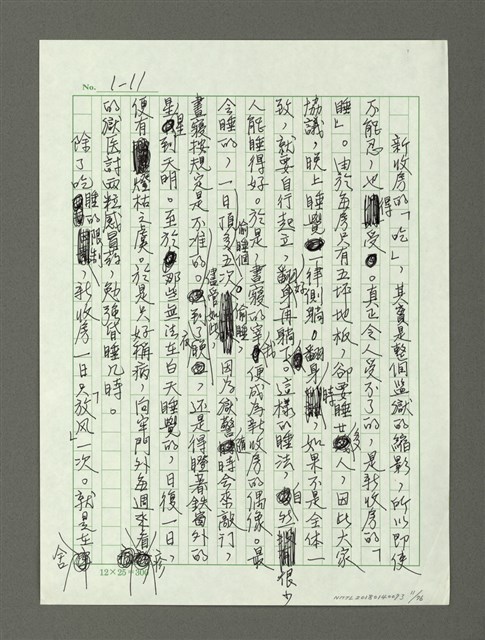 No. 1-11
新收房的「吃」，其實是整個監獄的縮影，所以即使
不能忍，也得受。真正令人受不了的，是新收房的「
睡」。由於每房只有五坪地板，卻要睡廿人，因此大家
協議，晚上睡覺一律側躺。翻身時，如果不是全体一
致，就要自行起立，翻好身再躺下。這樣的睡法，自然很少
人能睡得好。於是，晝寢的宰我便成為新收房的偶像。最
令睡的，一日頂多五次偷睡個，因為獄警隨時會來敲門，
晝寢按規定是不准的。儘管如此，到了晚夜，還是得瞪著鐵窗外的
星星到天明。至於那些無法在白天睡覺的，日復一日，
便有燈枯之虞。於是只好稱病，向牢門外每週來看
的獄医討兩粒感冒药，勉強昏睡几時。
除了吃睡的限制，新收房一日只「放风」一次。就是在
舍
12×25=300
NMTL20180140083 11/96